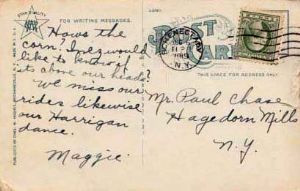 FOR WRITING MESSAGES.
POST CARD
THIS SPACE FOR ADDRESS ONLY.
SCHENECTADY
N.Y.
Hows the
corn? Inez would
like to know if
its above our heads?
We miss our
rides likewise
our Harrigan
dance.
Maggie.
Mr Paul Chase
Hagedorn Mills
N.Y.